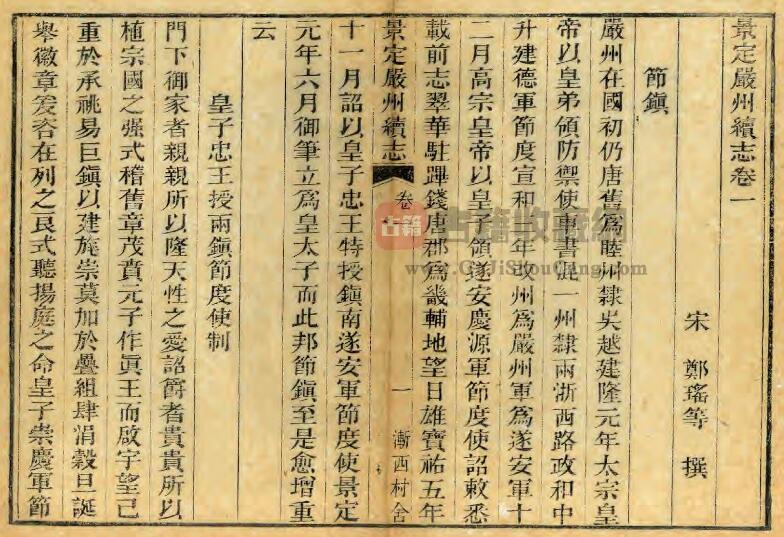 景定嚴州續志卷一
宋 鄭瑤等 撰
節鎮
嚴州在國初仍唐舊爲睦州隸吳越建隆元年太宗皇
帝以皇弟領防禦使事書混一州隸兩浙西路政和中
升建德軍節度宣和 年改州爲嚴州軍爲遂安軍十
二月高宗皇帝以皇子領遂安慶源軍節度使詔敕悉
載前志翠華駐蹕錢唐郡爲畿輔地望日雄寶祐五年
景定嚴州續志 卷一 一 漸西村舍
十一月詔以皇子忠王特授鎮南遂安軍節度使景定
元年六月御筆立爲皇太子而此邦節鎮至是愈增重
云
皇子忠王授兩鎮節度使制
門下御家者親親所以隆天性之愛詔爵者貴貴所以
植宗國之强式稽舊章茂賁元子作眞王而啟宇望已
重於承祧易巨鎮以建旄崇莫加於疊組肆涓穀旦誕
舉徽章爰咨在列之良式聽揚庭之命皇子崇慶軍節
古籍收藏網
www.GuJiShouCang.com